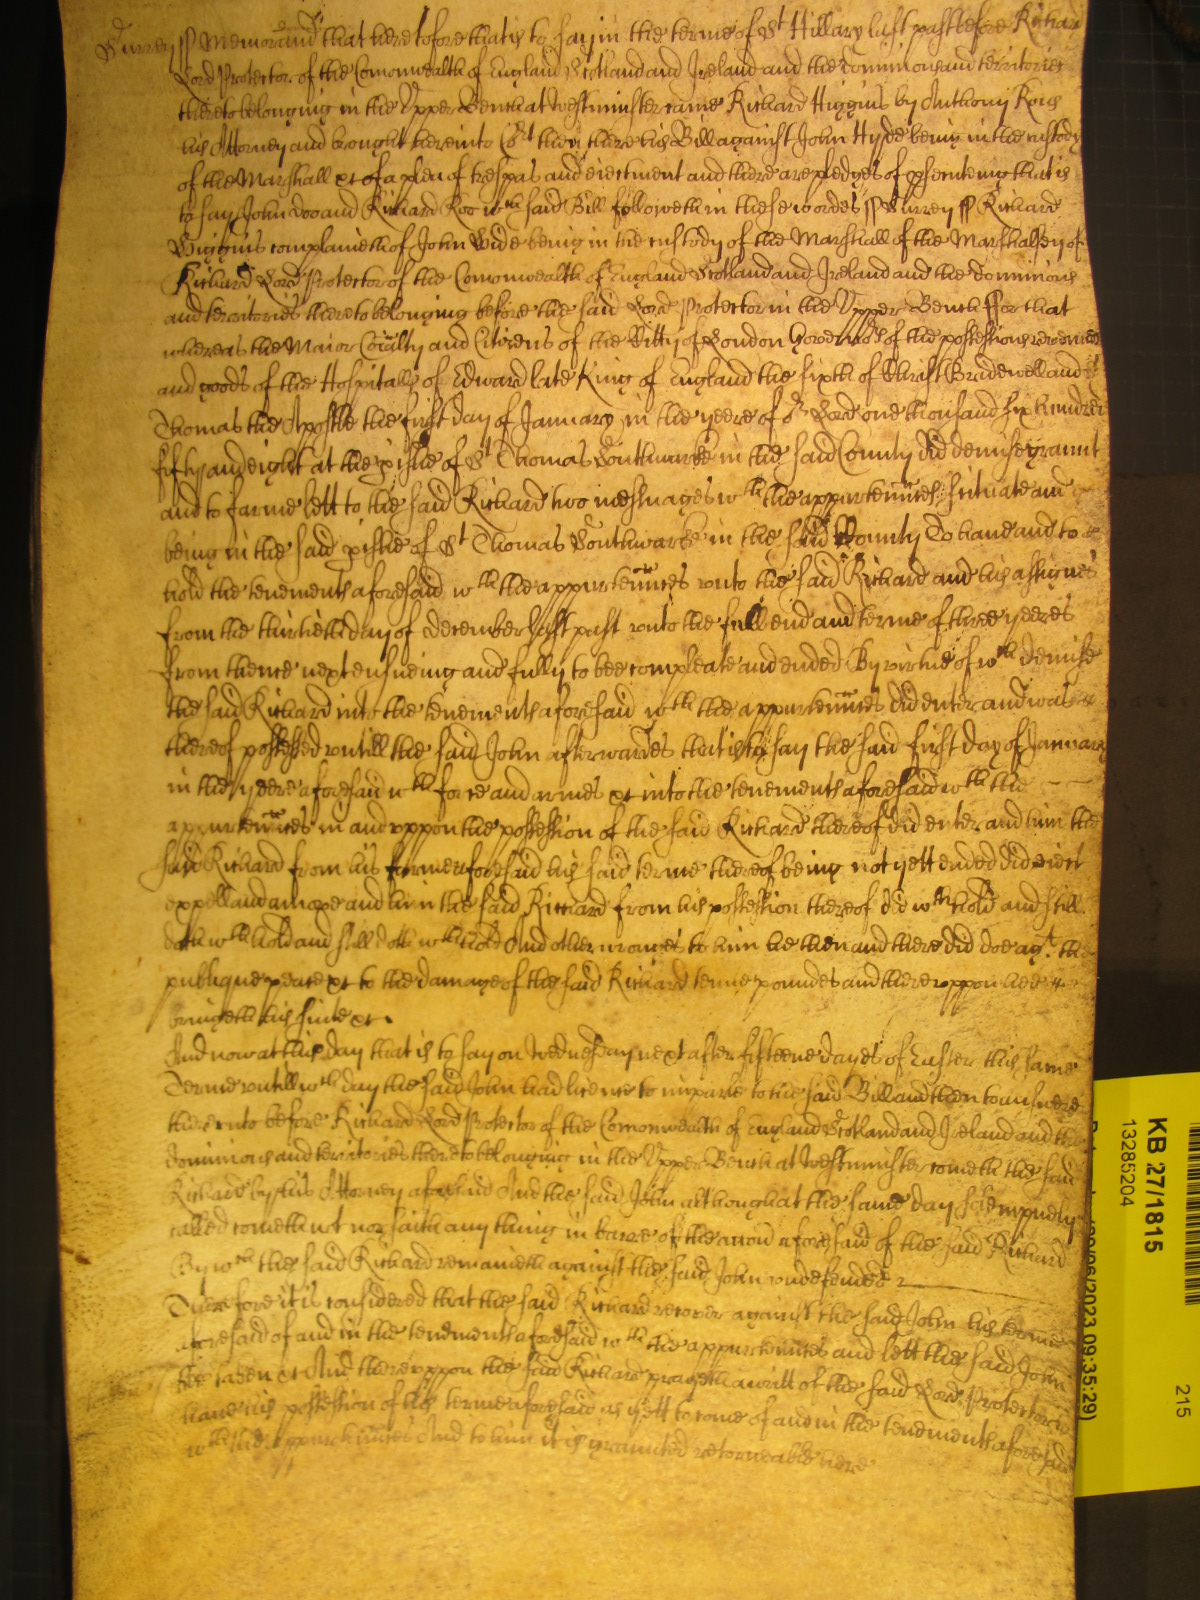 Surrey ss Memorand that heretofore that is to say in the terme of St Hillary last past before Richard
Lord Protector of the Comonwealth of England Scotland and Ireland and the dominions and territories
thereto belonging in the Upper Bench at Westminster came Richard Higgins by Anthony Rous
his Attorney and brought here into Cort then there his Bill against John Hyde being in the custody
of the Marshall &c of a plea of trespas and eiectment and there are pledges of psecuteing that is
to say John doo and Richard Roo wch said Bill followeth in these wordes ss Surrey ss Richard
Higgins complaineth of John Hide being in the custody of the Marshall of the Marshalsey of
Richard Lord Protector of the Comonwealth of England Scotland and Ireland and the dominions
and territories thereto belonging before the said Lord Protector in the Upper Bench ffor that
whereas the Maior Coialty and Citizens of the Citty of London Governors of the possessions revenues
and goods of the Hospitalls of Edward late King of England the sixth of Christ Bridewell and St
Thomas the Apostle the first day of January in the yeere of or Lord one thousand six hundred
fifty and eight at the pishe of St Thomas Southwarke in the said County did demise graunt
and to farme lett to the said Richard two mesuages wth the appurtennces situate and
being in the said pishe of St Thomas Southwarke in the said County To have and to
hold the tenements aforesaid wth the appurtennces unto the said Richard and his assignes
from the thirtieth day of December last past unto the full end and terme of three yeeres
from thence next ensueing and fully to bee compleate and ended By virtue of wch demise
the said Richard into the tenements aforesaid wth the appurtennces did enter and was
thereof possessed untill the said John afterwardes that is to say the said first day of January
in the yeere aforesaid wth force and armes &c into the tenements aforesaid wth the
appurtennces in and uppon the possession of the said Richard thereof did enter and him the
said Richard from his farme aforesaid his said terme thereof being not yett ended did eiect
expell and amove and him the said Richard from his possession thereof did wthhold and still
doth wthhold and still doth wthhold And other wronges to him he then and there did doe agt the
publique peace &c to the damage of the said Richard tenne poundes and thereuppon hee
bringeth his suite &c.
And now at this day that is to say on Wednesday next after fifteene dayes of Easter this same
Terme untill wch day the said John had licence to imparle to the said Bill and then to answere
thereunto before Richard Lord Protector of the Comonwealth of England Scotland and Ireland and the
dominions and territories thereto belonging in the Upper Bench at Westminster cometh the said
Richard by his Attorney aforesaid And the said John although at the same day solempnely
called cometh not nor saith any thing in barre of the accon aforesaid of the said Richard
By wch the said Richard remaineth against the said John undefended
Therefore it is considered that the said Richard recover against the said John his terme
aforesaid of and in the tenements aforesaid wth the appurtennces and lett the said John
bee taken &c And thereuppon the said Richard prayeth a writt of the said Lord Protector
have his possession of his terme aforesaid as yett to come of and in the tenements aforesaid
wth the appurtennces And to him it is graunted retorneable here
KB 27/1815
13285204
215
2023 09:35:29)